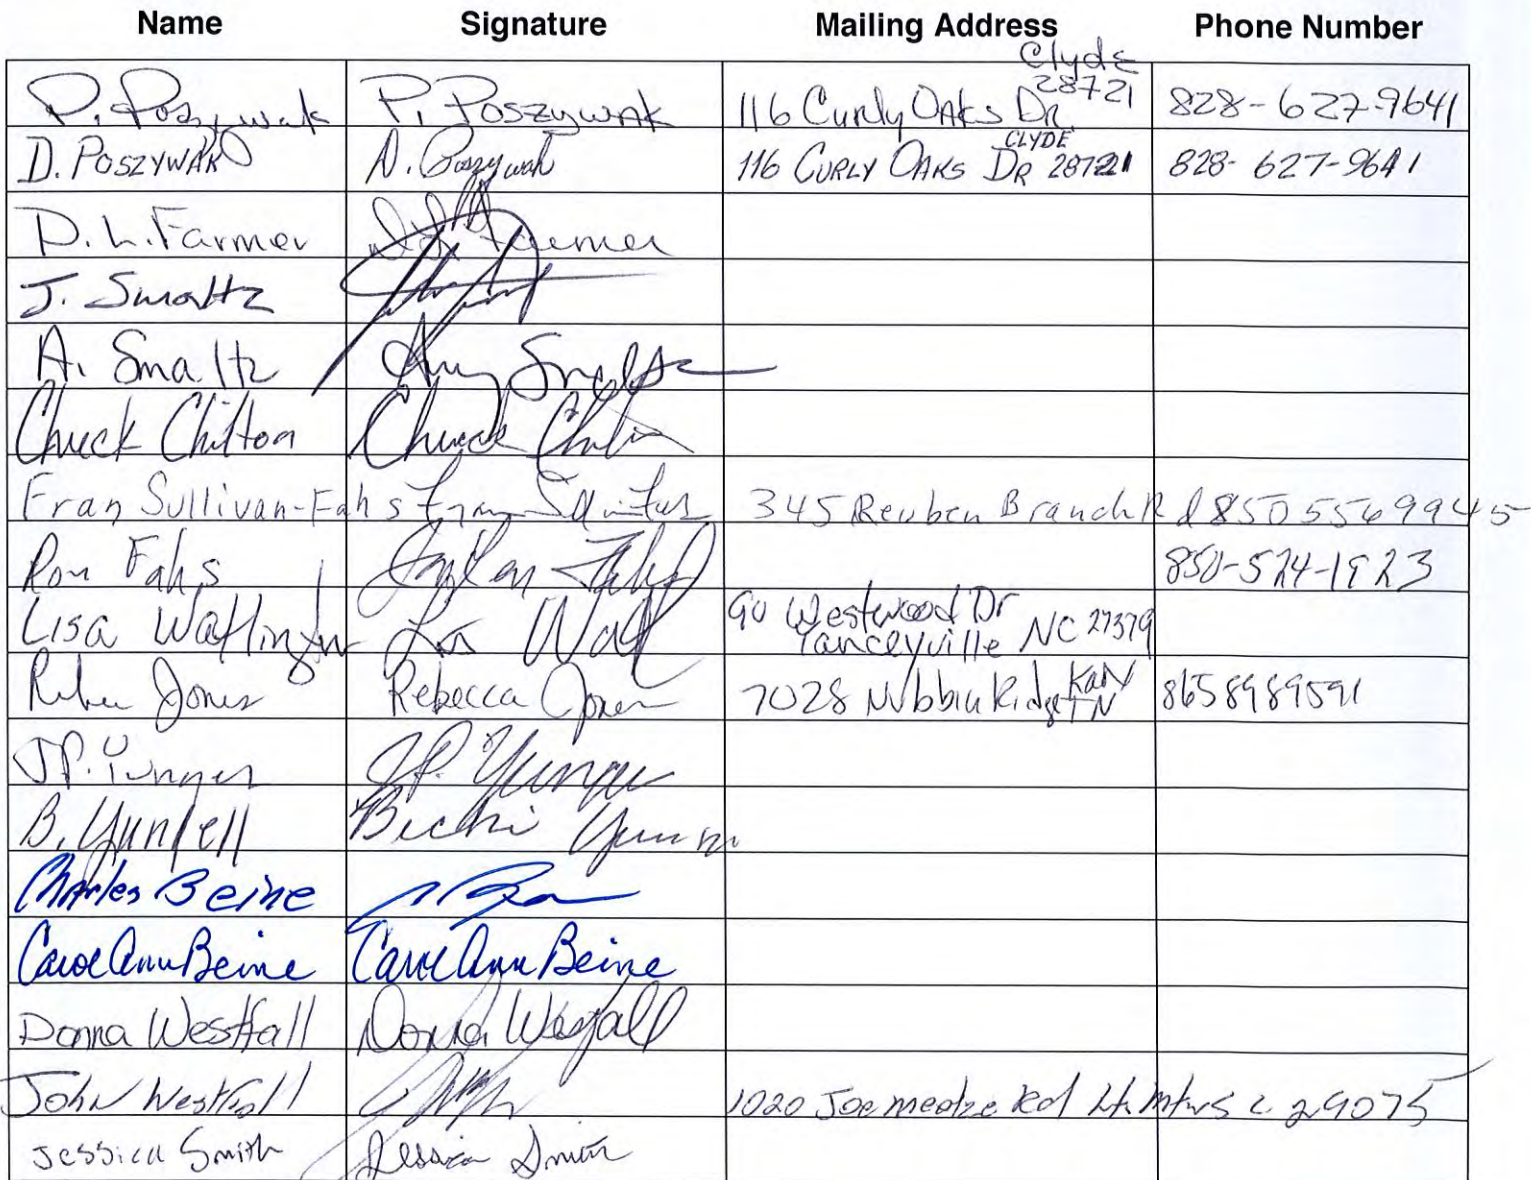 Name Signature Mailing Address Phone Number
P. Poszywak P. Poszywak 116 Curly Oaks Dr Clyde 28721 828-627-9641
D. Poszywak D. Poszywak 116 Curly Oaks Dr Clyde 28721 828-627-9641
D. L. Farmer Farmer
J. Smaltz
A. Smaltz Amy Smaltz
Chuck Chilton Chuck Chilton
Fran Sullivan-Fahs Fran 345 Reuben Branch Rd 850 556 9945
Ron Fahs 850-524-1923
Lisa Watlington Westwood Dr
Yanceyville NC 27379
Jones Rebecca Jones 7028 Nubbin Ridge TN 8658989591
J.P. Yunger J.P. Yunger
B.
Charles Beine
Carol Ann Beine Carol Ann Beine
Donna Westfall Donna Westfall
John Westfall 1020 Joe Rd 29075
Jessica Smith Jessica Smith